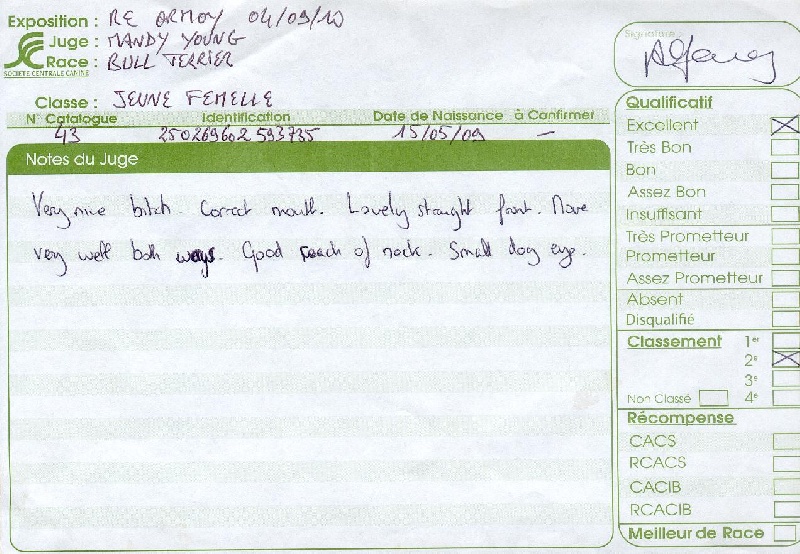 Exposition : RE ORMOY 04/09/10
Juge : MANDY YOUNG
Race : BULL TERRIER
SOCIÉTÉ CENTRALE CANINE
Classe : JEUNE FEMELLE
N° Catalogue Identification Date de Naissance à Confirmer
43 250269602593735 15/05/09 —
Notes du Juge
Very nice bitch. Correct mouth. Lovely straight front. Move
very well both ways. Good reach of neck. Small dog eye.
Signature
Qualificatif
Excellent
Très Bon
Bon
Assez Bon
Insuffisant
Très Prometteur
Prometteur
Assez Prometteur
Absent
Disqualifié
Classement 1er
2e
3e
Non Classé 4e
Récompense
CACS
RCACS
CACIB
RCACIB
Meilleur de Race